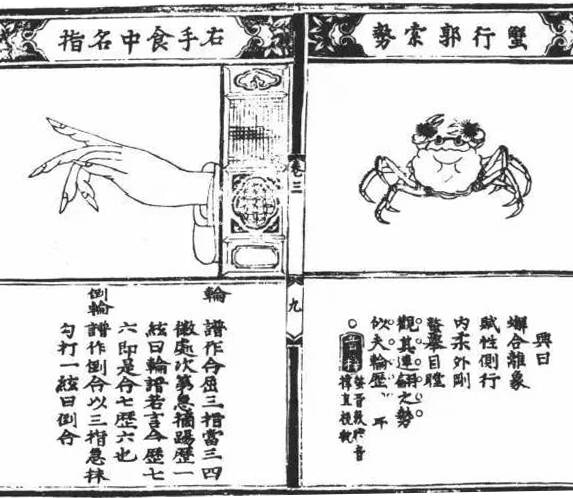 蟹行郭索勢
興曰
蠏合離象
賦性側行
內柔外剛
螯擧目瞠
觀其連翩之勢
似夫輪歷
右手食中名指
輪
譜作合屈三指當三四
徽處次第急摘踢歷一
絃曰輪譜若言合歷七
六即是合七歷六也
倒輪
譜作倒合以三指急抹
勾打一絃曰倒合
卷三
九